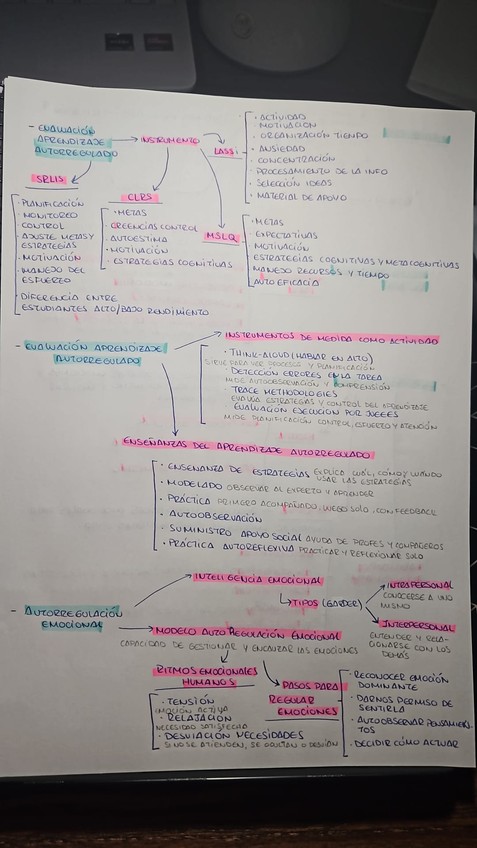 - EVALUACIÓN
APRENDIZAJE
AUTORREGULADO
INSTRUMENTO
LASSI
· ACTIVIDAD
MOTIVACIÓN
· ORGANIZACIÓN TIEMPO
· ANSIEDAD
· CONCENTRACIÓN
· PROCESAMIENTO DE LA INFO
· SELECCIÓN IDEAS
· MATERIAL DE APOYO
SRLIS
· PLANIFICACIÓN
· MONITOREO
CONTROL
· AJUSTE METAS Y
ESTRATEGIAS
· MOTIVACIÓN
· MANEJO DEL
ESFUERZO
· DIFERENCIA ENTRE
ESTUDIANTES ALTO/BAJO RENDIMIENTO
CLRS
· METAS
· CREENCIAS CONTROL
· AUTOESTIMA
· MOTIVACIÓN
· ESTRATEGIAS COGNITIVAS
MSLQ
· METAS
· EXPECTATIVAS
· MOTIVACIÓN
· ESTRATEGIAS COGNITIVAS Y METACOGNITIVAS
· MANEJO RECURSOS Y TIEMPO
· AUTOEFICACIA
- EVALUACIÓN APRENDIZAJE
AUTORREGULADO
INSTRUMENTOS DE MEDIDA COMO ACTIVIDAD
· THINK-ALOUD (HABLAR EN ALTO)
SIRVE PARA VER PROCESOS Y PLANIFICACIÓN
· DETECCIÓN ERRORES EN LA TAREA
MIDE AUTOOBSERVACIÓN Y COMPRENSIÓN
· TRACE METHODOLOGIES
EVALÚA ESTRATEGIAS Y CONTROL DEL APRENDIZAJE
· EVALUACIÓN EJECUCIÓN POR JUECES
MIDE PLANIFICACIÓN CONTROL, ESFUERZO Y ATENCIÓN
ENSEÑANZAS DEL APRENDIZAJE AUTORREGULADO
· ENSEÑANZA DE ESTRATEGIAS EXPLICA CUÁL, CÓMO Y CUÁNDO
USAR LAS ESTRATEGIAS
· MODELADO OBSERVAR AL EXPERTO Y APRENDER
· PRÁCTICA PRIMERO ACOMPAÑADO, LUEGO SOLO, CON FEEDBACK
· AUTOOBSERVACIÓN
· SUMINISTRO APOYO SOCIAL AYUDA DE PROFES Y COMPAÑEROS
· PRÁCTICA AUTOREFLEXIVA PRACTICAR Y REFLEXIONAR SOLO
- AUTORREGULACIÓN
EMOCIONAL
INTELIGENCIA EMOCIONAL
TIPOS (GARDER)
INTRAPERSONAL
CONOCERSE A UNO
MISMO
INTERPERSONAL
ENTENDER Y RELA-
CIONARSE CON LOS
DEMÁS
MODELO AUTO REGULACIÓN EMOCIONAL
CAPACIDAD DE GESTIONAR Y ENCAUZAR LAS EMOCIONES
RITMOS EMOCIONALES
HUMANOS
· TENSIÓN
EMOCIÓN ACTIVA
· RELAJACIÓN
NECESIDAD SATISFECHA
· DESVIACIÓN NECESIDADES
SI NO SE ATIENDEN, SE OCULTAN O DESVÍAN
PASOS PARA
REGULAR
EMOCIONES
· RECONOCER EMOCIÓN
DOMINANTE
· DARNOS PERMISO DE
SENTIRLA
· AUTOOBSERVAR PENSAMIEN-
TOS
· DECIDIR CÓMO ACTUAR